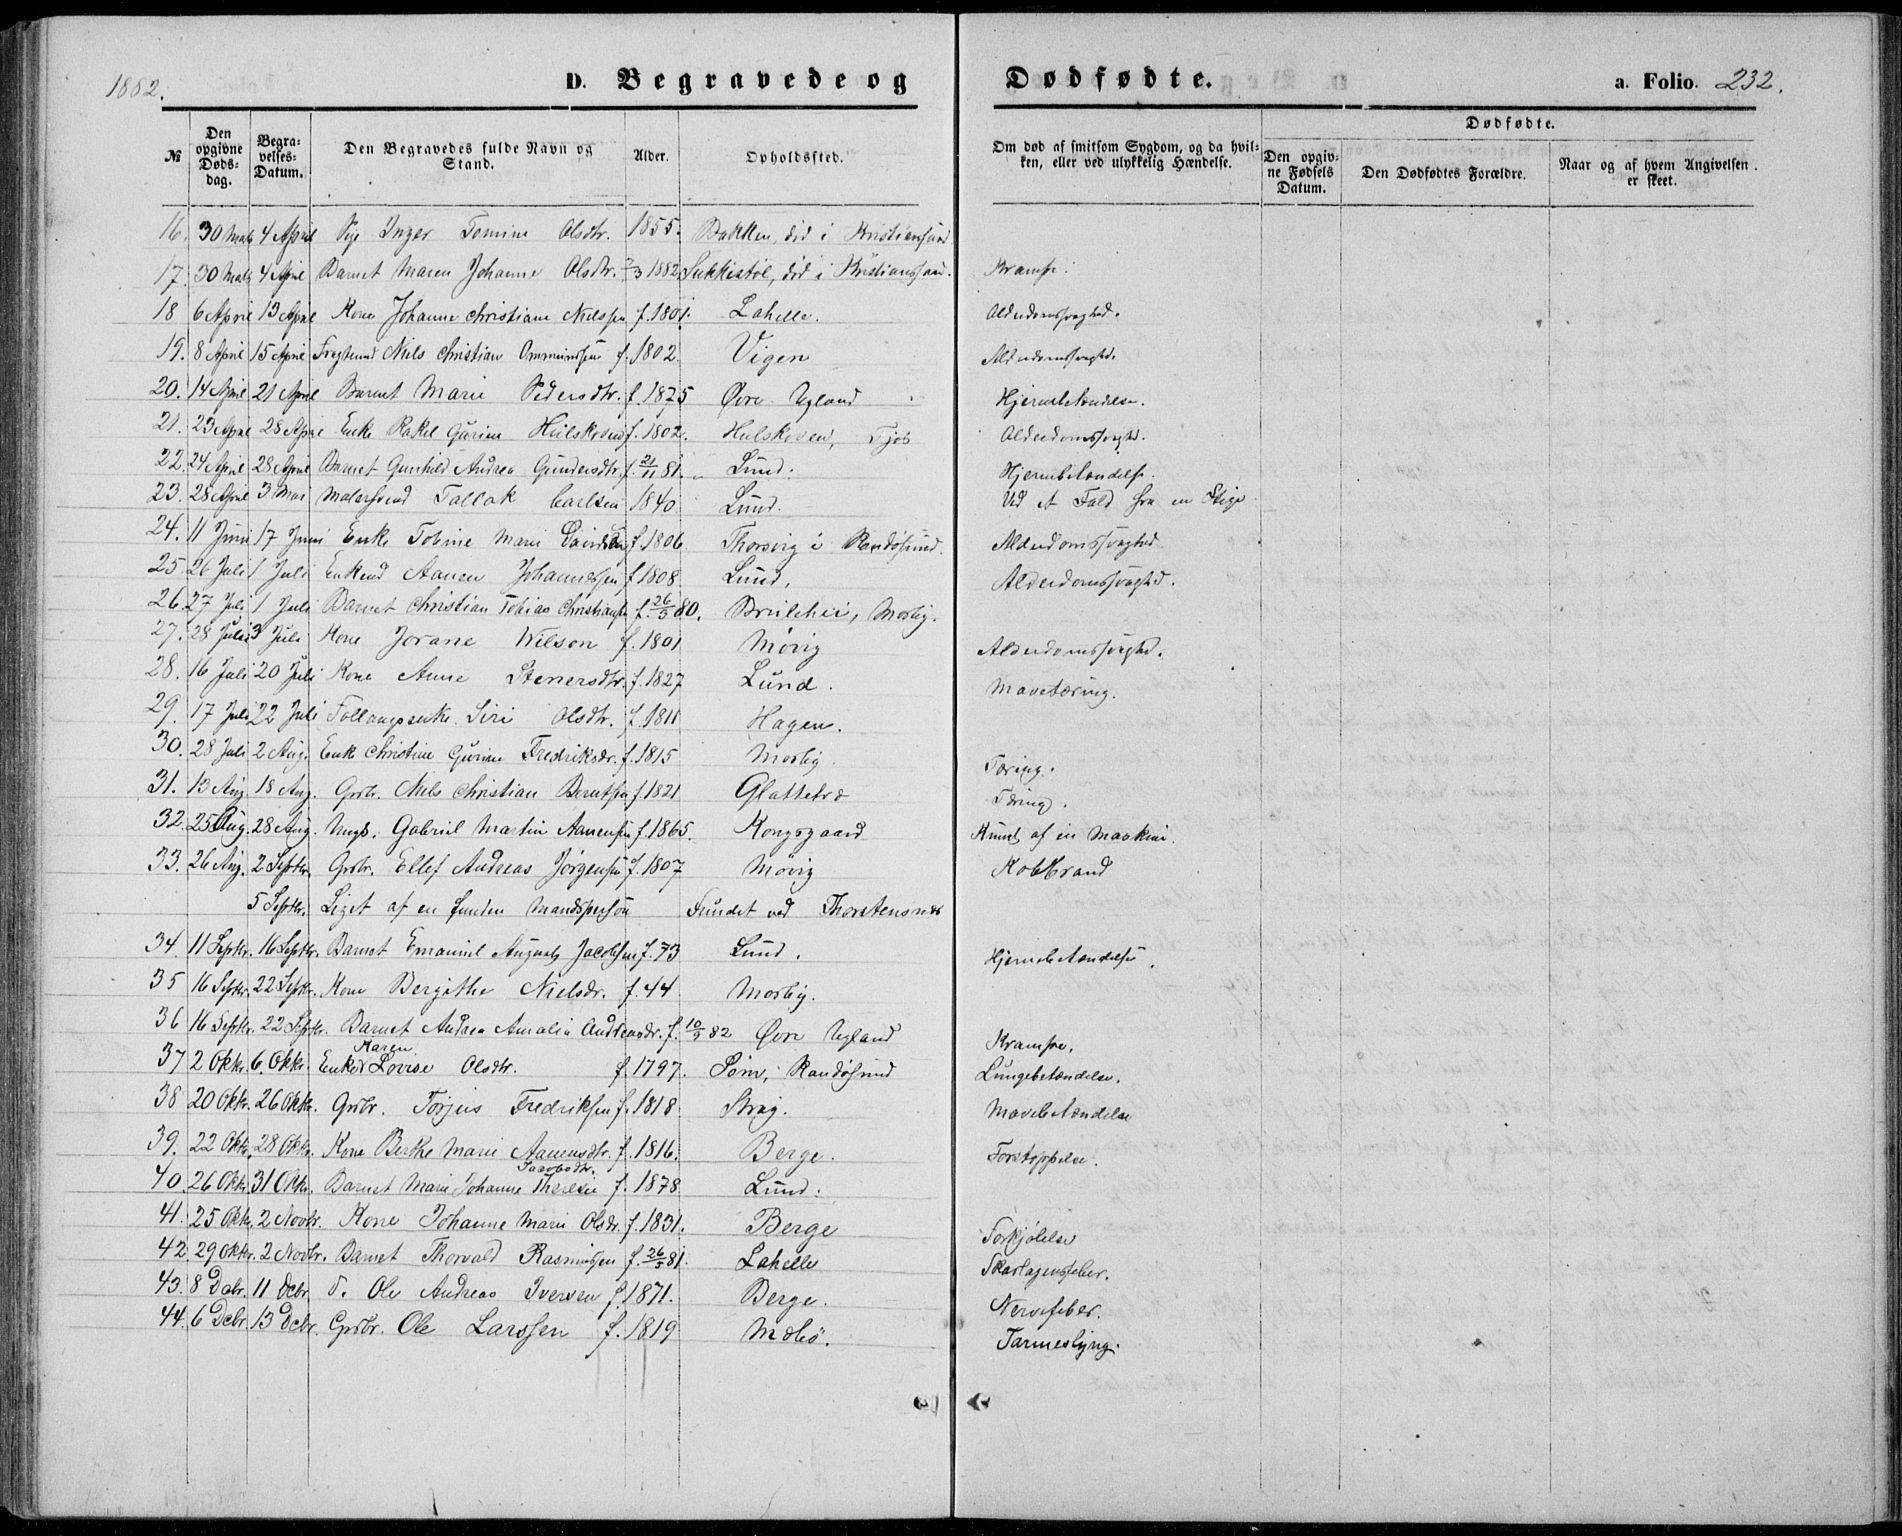 1882. D. Begravede og Dødfødte. a. Folio. 232.
№ Den opgivne Døds-dag. Begra-velses-Datum. Den Begravedes fulde Navn og Stand. Alder. Opholdssted. Om død af smitsom Sygdom, og da hvil-ken, eller ved ulykkelig Hændelse. Dødfødte. Den opgiv-ne Fødsels Datum. Den Dødfødtes Forældre. Naar og af hvem Angivelsen er skeet.
16. 30 Marts 4 April Pige Inger Tomine Olsdtr. 1855. Bakken, død i Kristianssand
17. 30 Marts 4 April Barnet Maren Johanne Olsdtr. 7/3 1882 død i Kristianssand. Krampe.
18 6 April 13 April Kone Johanne Christiane Nielssen f. 1801. Lahelle. Alderdomssvaghed.
19. 8 April 15 April Niels Christian Ommundsen f. 1802. Vigen Alderdomssvaghed.
20. 14 April 21 April Barnet Marie Pedersdtr. f. 1875 Øvre Ugland Hjernebetændelse.
21. 23 April 28 April Enke Rakel Gurine Hulskoven f. 1802. Hulskoven, Alderdomssvaghed.
22. 24 April 28 April Barnet Gunhild Andrea Gundersdtr. f. 21/11 81. Lund. Hjernebetændelse.
23. 28 April 3. Mai Malersvend Tallak Carlsen 1840 Lund. Ved et Fald fra en Stige
24. 11 Juni 17 Juni Enke Tobine Marie f. 1806. Thorsvig i Randøsund. Alderdomssvaghed
25 26 Juli 1 Juli Enkemd Aanen Johannessen f. 1808 Lund. Alderdomssvaghed.
26. 27 Juli 1 Juli Barnet Christian Tobias Christiansen f. 26/5 80. Mosby.
27. 28 Juli 3 Juli Kone Jorane Wilson f. 1801 Møvig Alderdomssvaghed.
28. 16 Juli 20 Juli Kone Anne Stenersdtr. f. 1827 Lund. Mavetæring.
29. 17 Juli 22 Juli Follaugsenke Siri Olsdtr. f. 1811 Hagen.
30. 28 Juli 2 Aug. Enke Christine Gurine Fredriksdr. f. 1815 Mosby. Tæring.
31. 13 Aug. 18 Aug. Grbr. Niels Christian Berntsen f. 1821 Glattetre Tæring.
32. 25 Aug. 28 Aug. Ungk. Gabriel Martin Aanensen f. 1865. Kongsgaard Knust af en Maskine.
33. 26 Aug. 2 Septbr. Grbr. Ellef Andreas Jørgensen f. 1807 Møvig Koldbrand
5 Septbr. Liget af en funden Mandsperson Fundet ved Thorstensnes
34. 11 Septbr. 16 Septbr. Barnet Emanuel August Jacobsen f. 73 Lund. Hjernebetændelse.
35 16 Septbr. 22 Septbr. Kone Bergithe Nielsdr. f. 44 Mosby.
36 16 Septbr. 22 Septbr. Barnet Andrea Amalia Andreasdr. f. 10/9 82 Øvre Ugland Krampe.
Karen
37 2 Oktr. 6. Oktr. Enke Lovise Olsdtr. f. 1797. Søm, Randøsund Lungebetændelse.
38 20 Oktr. 26 Oktr. Grbr. Torjus Fredriksen f. 1818 Strag. Mavebetændelse
39. 22 Oktr. 28 Oktr. Kone Berte Marie Aanensdtr. f. 1816. Berge. Forstoppelse.
Jacobsdtr.
40. 26 Oktr. 31 Oktr. Barnet Marie Johanne Therese f. 1878 Lund.
41. 25 Oktr. 2 Novbr. Kone Johanne Marie Olsdr. f. 1831. Berge Forkjølelse
42 29 Oktr. 2 Novbr. Barnet Thorvald Rasmussen f. 26/5 81. Lahelle Skarlagensfeber.
43. 8 Dcbr. 11 Dcbr. Ole Andreas Iversen f. 1871. Berge. Nervefeber.
44. 6 Dcbr. 13 Dcbr. Grbr. Ole Larssen f. 1819 Mæbø. Tarmeslyng.